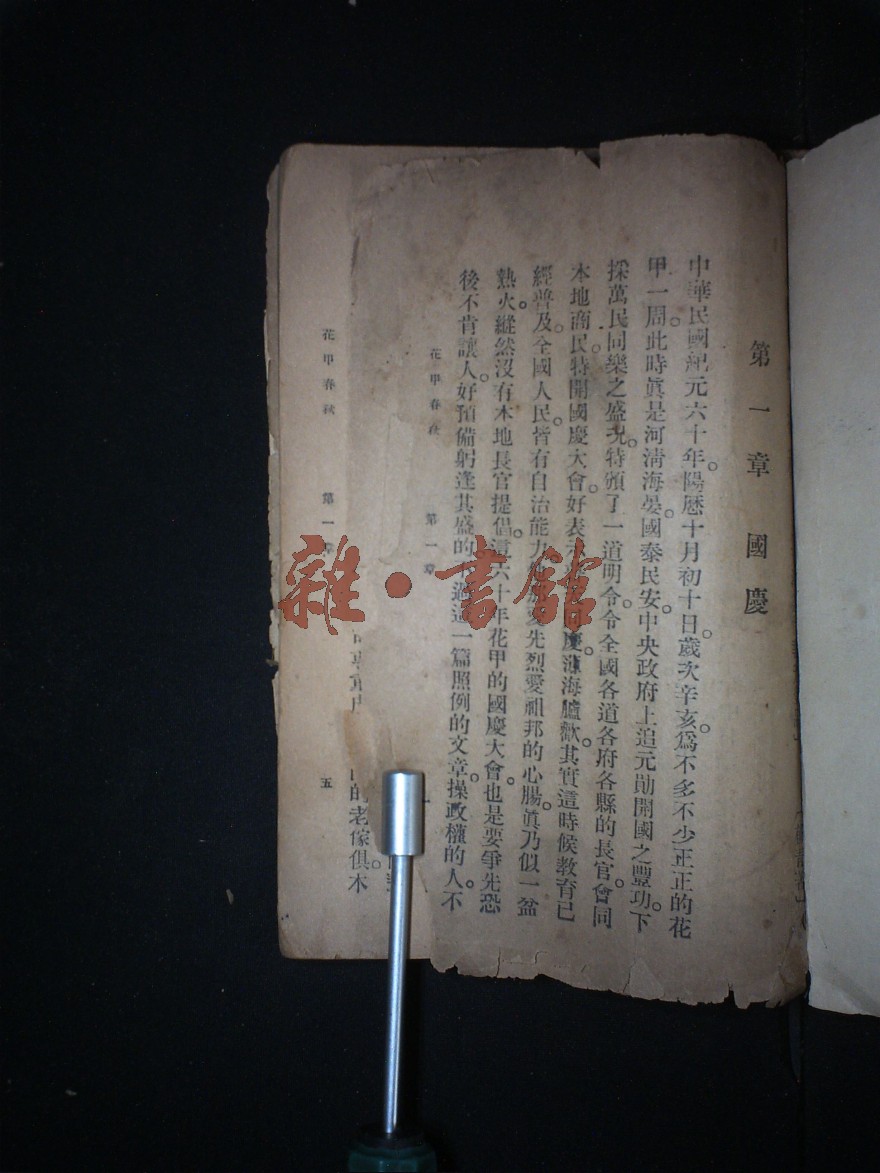 第一章 國慶
中華民國紀元六十年。陽曆十月初十日。歲次辛亥。爲不多不少正正的花
甲一周。此時眞是河淸海晏。國泰民安。中央政府上追元勛開國之豐功。下
採萬民同樂之盛况。特頒了一道明令。令全國各道各府各縣的長官。會同
本地商民。特開國慶大會。好表示 慶。海臚歡。其實這時候敎育已
經普及。全國人民。皆有自治能力 愛先烈愛祖邦的心腸。眞乃似一盆
熱火。縱然沒有本地長官提倡。這六十年花甲的國慶大會。也是要爭先恐
後不肯讓人。好預備躬逢其盛的。不過這一篇照例的文章。操政權的人。不
花甲春秋 第一章
的老傢俱。木
花甲春秋 第一章 五
雜·書館